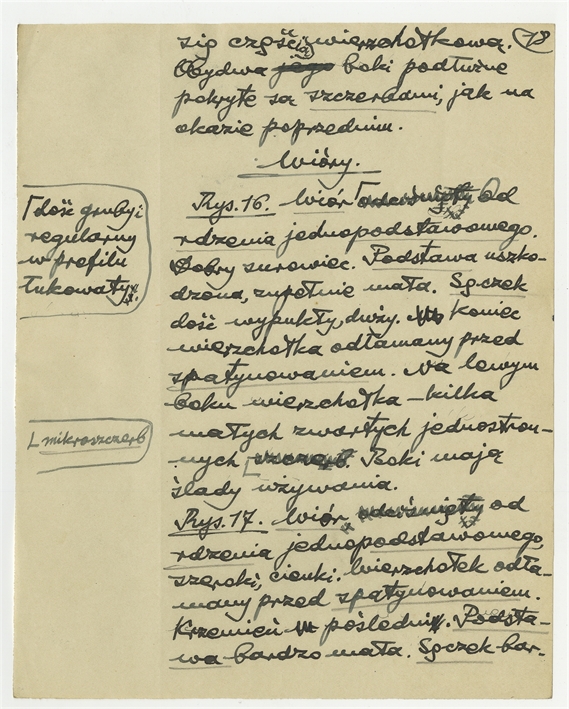 78
się część ią wierzchołkową.
Obydwa jego boki podłużne
pokryte są szczerbami, jak na
okazie poprzednim.
Wióry.
Rys. 16. Wiór ⌈ odciśnięty od
rdzenia jednopodstawowego.
Dobry surowiec. Podstawa uszko-
dzona, zupełnie mała. Sęczek
dość wypukły, duży. Koniec
wierzchołka odłamany przed
spatynowaniem. Na lewym
boku wierzchołka – kilka
małych zwartych jednostron-
nych ⌊ szczerb. Boki mają
ślady używania.
Rys. 17. Wiór odciśnięty od
rdzenia jednopodstawowego,
szeroki, cienki. Wierzchołek odła-
many przed spatynowaniem.
Krzemień pośledni. Podsta-
wa bardzo mała. Sęczek bar-
⌈dość gruby i
regularny
w profilu
łukowaty
⌊mikroszczerb